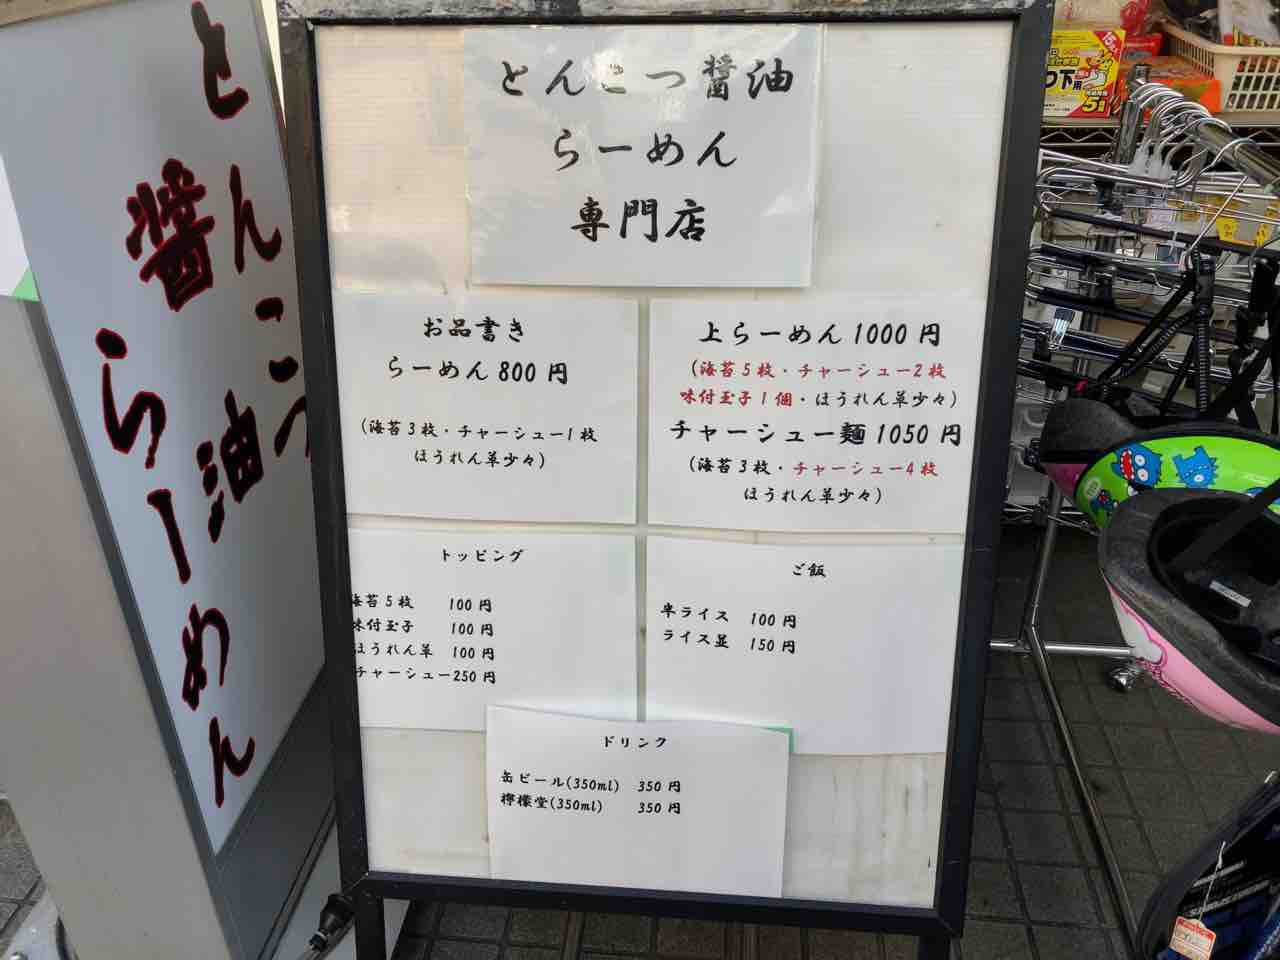 とんこつ
醤油
らーめん
とんこつ醤油
らーめん
専門店
お品書き
らーめん 800 円
(海苔3枚・チャーシュー1枚
ほうれん草少々)
上らーめん 1000 円
(海苔5枚・チャーシュー2枚
味付玉子1個・ほうれん草少々)
チャーシュー麺 1050 円
(海苔3枚・チャーシュー4枚
ほうれん草少々)
トッピング
海苔5枚 100 円
味付玉子 100 円
ほうれん草 100 円
チャーシュー250 円
ご飯
半ライス 100 円
ライス並 150 円
ドリンク
缶ビール(350ml) 350 円
檸檬堂(350ml) 350 円
下用
5